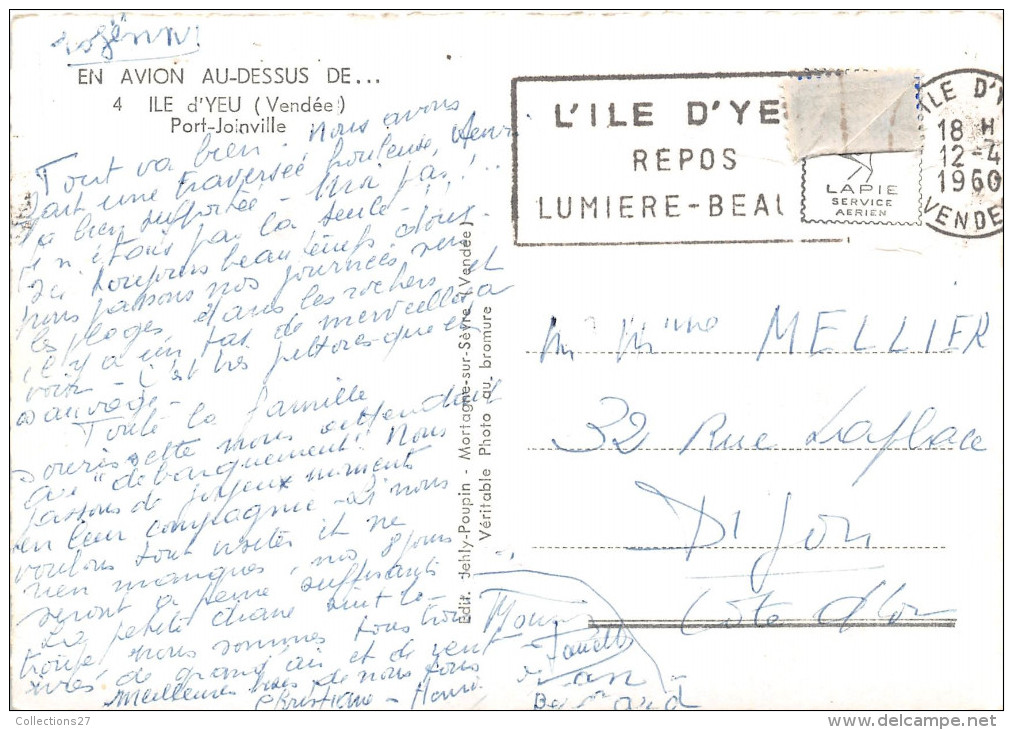 EN AVION AU-DESSUS DE...
4 ILE d'YEU (Vendée)
Port-Joinville
Tout va bien. Nous avons
fait une traversée houleuse, Henri
l'a bien supportée - Moi pas !...
je n'étais pas la seule -
Ici toujours beau temps
nous passons nos journées vers
les plages dans les rochers et
il y a un tas de merveilles à
voir - C'est très pittoresque et
sauvage -
Toute la famille
nous attendait
au "débarquement" Nous
passons de joyeux moments
en leur compagnie - et nous
voulons tout visiter et ne
rien manquer, nos 8 jours
seront à peine suffisants
La petite chane suit la
troupe, nous sommes tous très
ivres de grand air et de vent
Meilleures de nous tous
Christiane - Henri
Bernard
Edit. Jehly-Poupin - Mortagne-sur-Sèvre (Vendée)
Véritable Photo au bromure
L'ILE D'YE
REPOS
LUMIERE-BEAU
LAPIE
SERVICE
AERIEN
ILE D'Y
18 H
12-4
1960
VENDE
M Mme MELLIER
32 Rue Laplace
Dijon
Côte d'Or
Collections27
www.delcampe.net